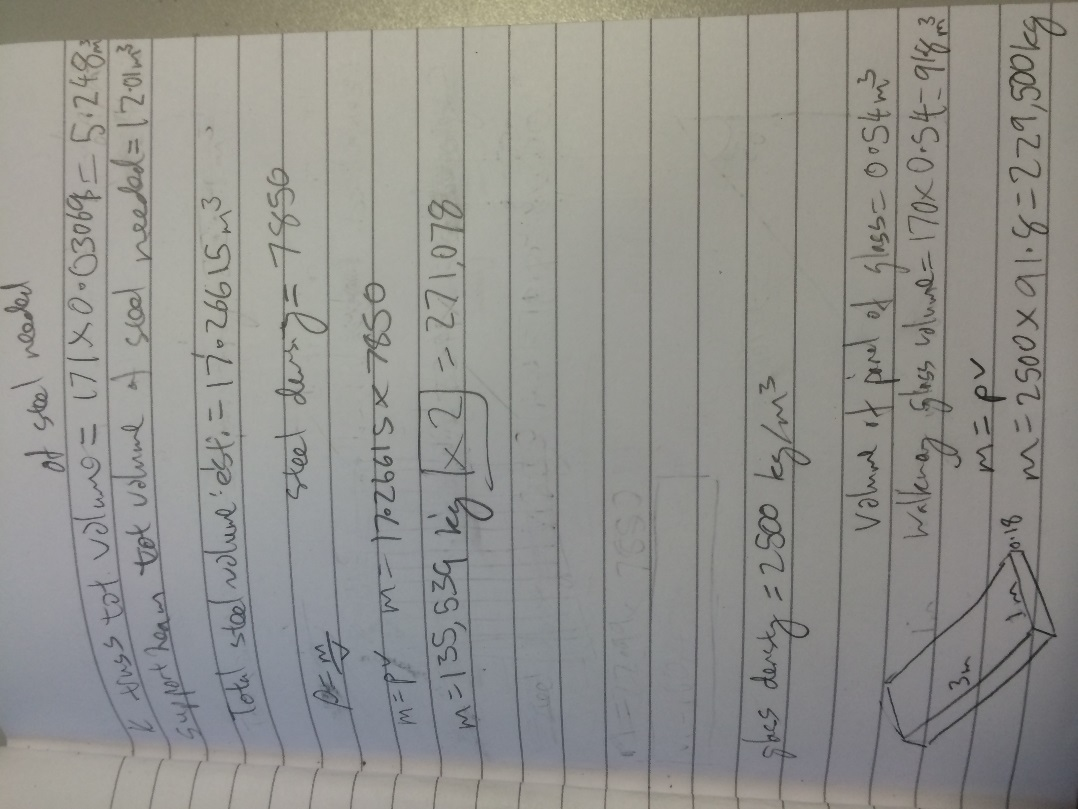 of steel needed
K truss tot. volume = 171 × 0.03069 = 5.248m³
support beam tot volume of steel needed = 12.01m³
Total steel volume: est. = 17.26615m³
steel density = 7850
ρ = m/v
m = ρv m = 17.26615 × 7850
m = 135,539 kg × 2 = 271,078
glass density = 2500 kg/m³
Volume of panel of glass = 0.54m³
Walkway glass volume = 170 × 0.54 = 91.8m³
m = ρv
3m 1m 0.18 m = 2500 × 91.8 = 229,500kg